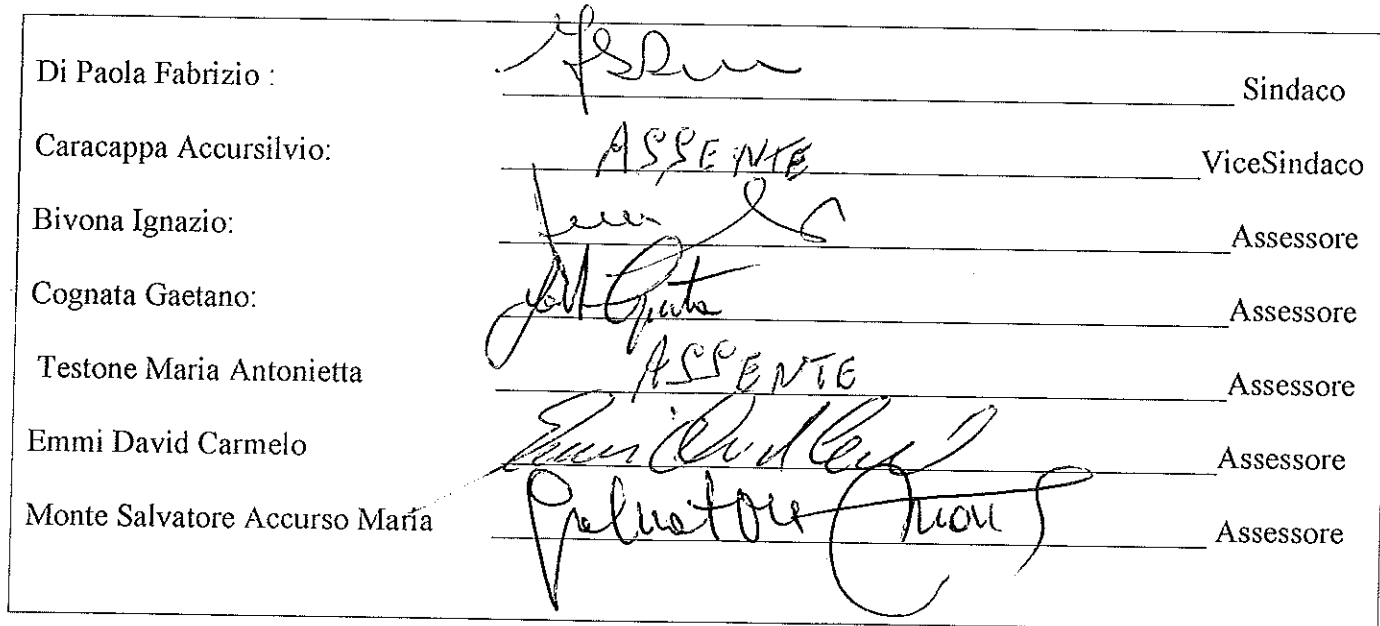 Di Paola Fabrizio : Sindaco
Caracappa Accursilvio: ASSENTE ViceSindaco
Bivona Ignazio: Assessore
Cognata Gaetano: Assessore
Testone Maria Antonietta ASSENTE Assessore
Emmi David Carmelo Assessore
Monte Salvatore Accurso Maria Salvatore Assessore